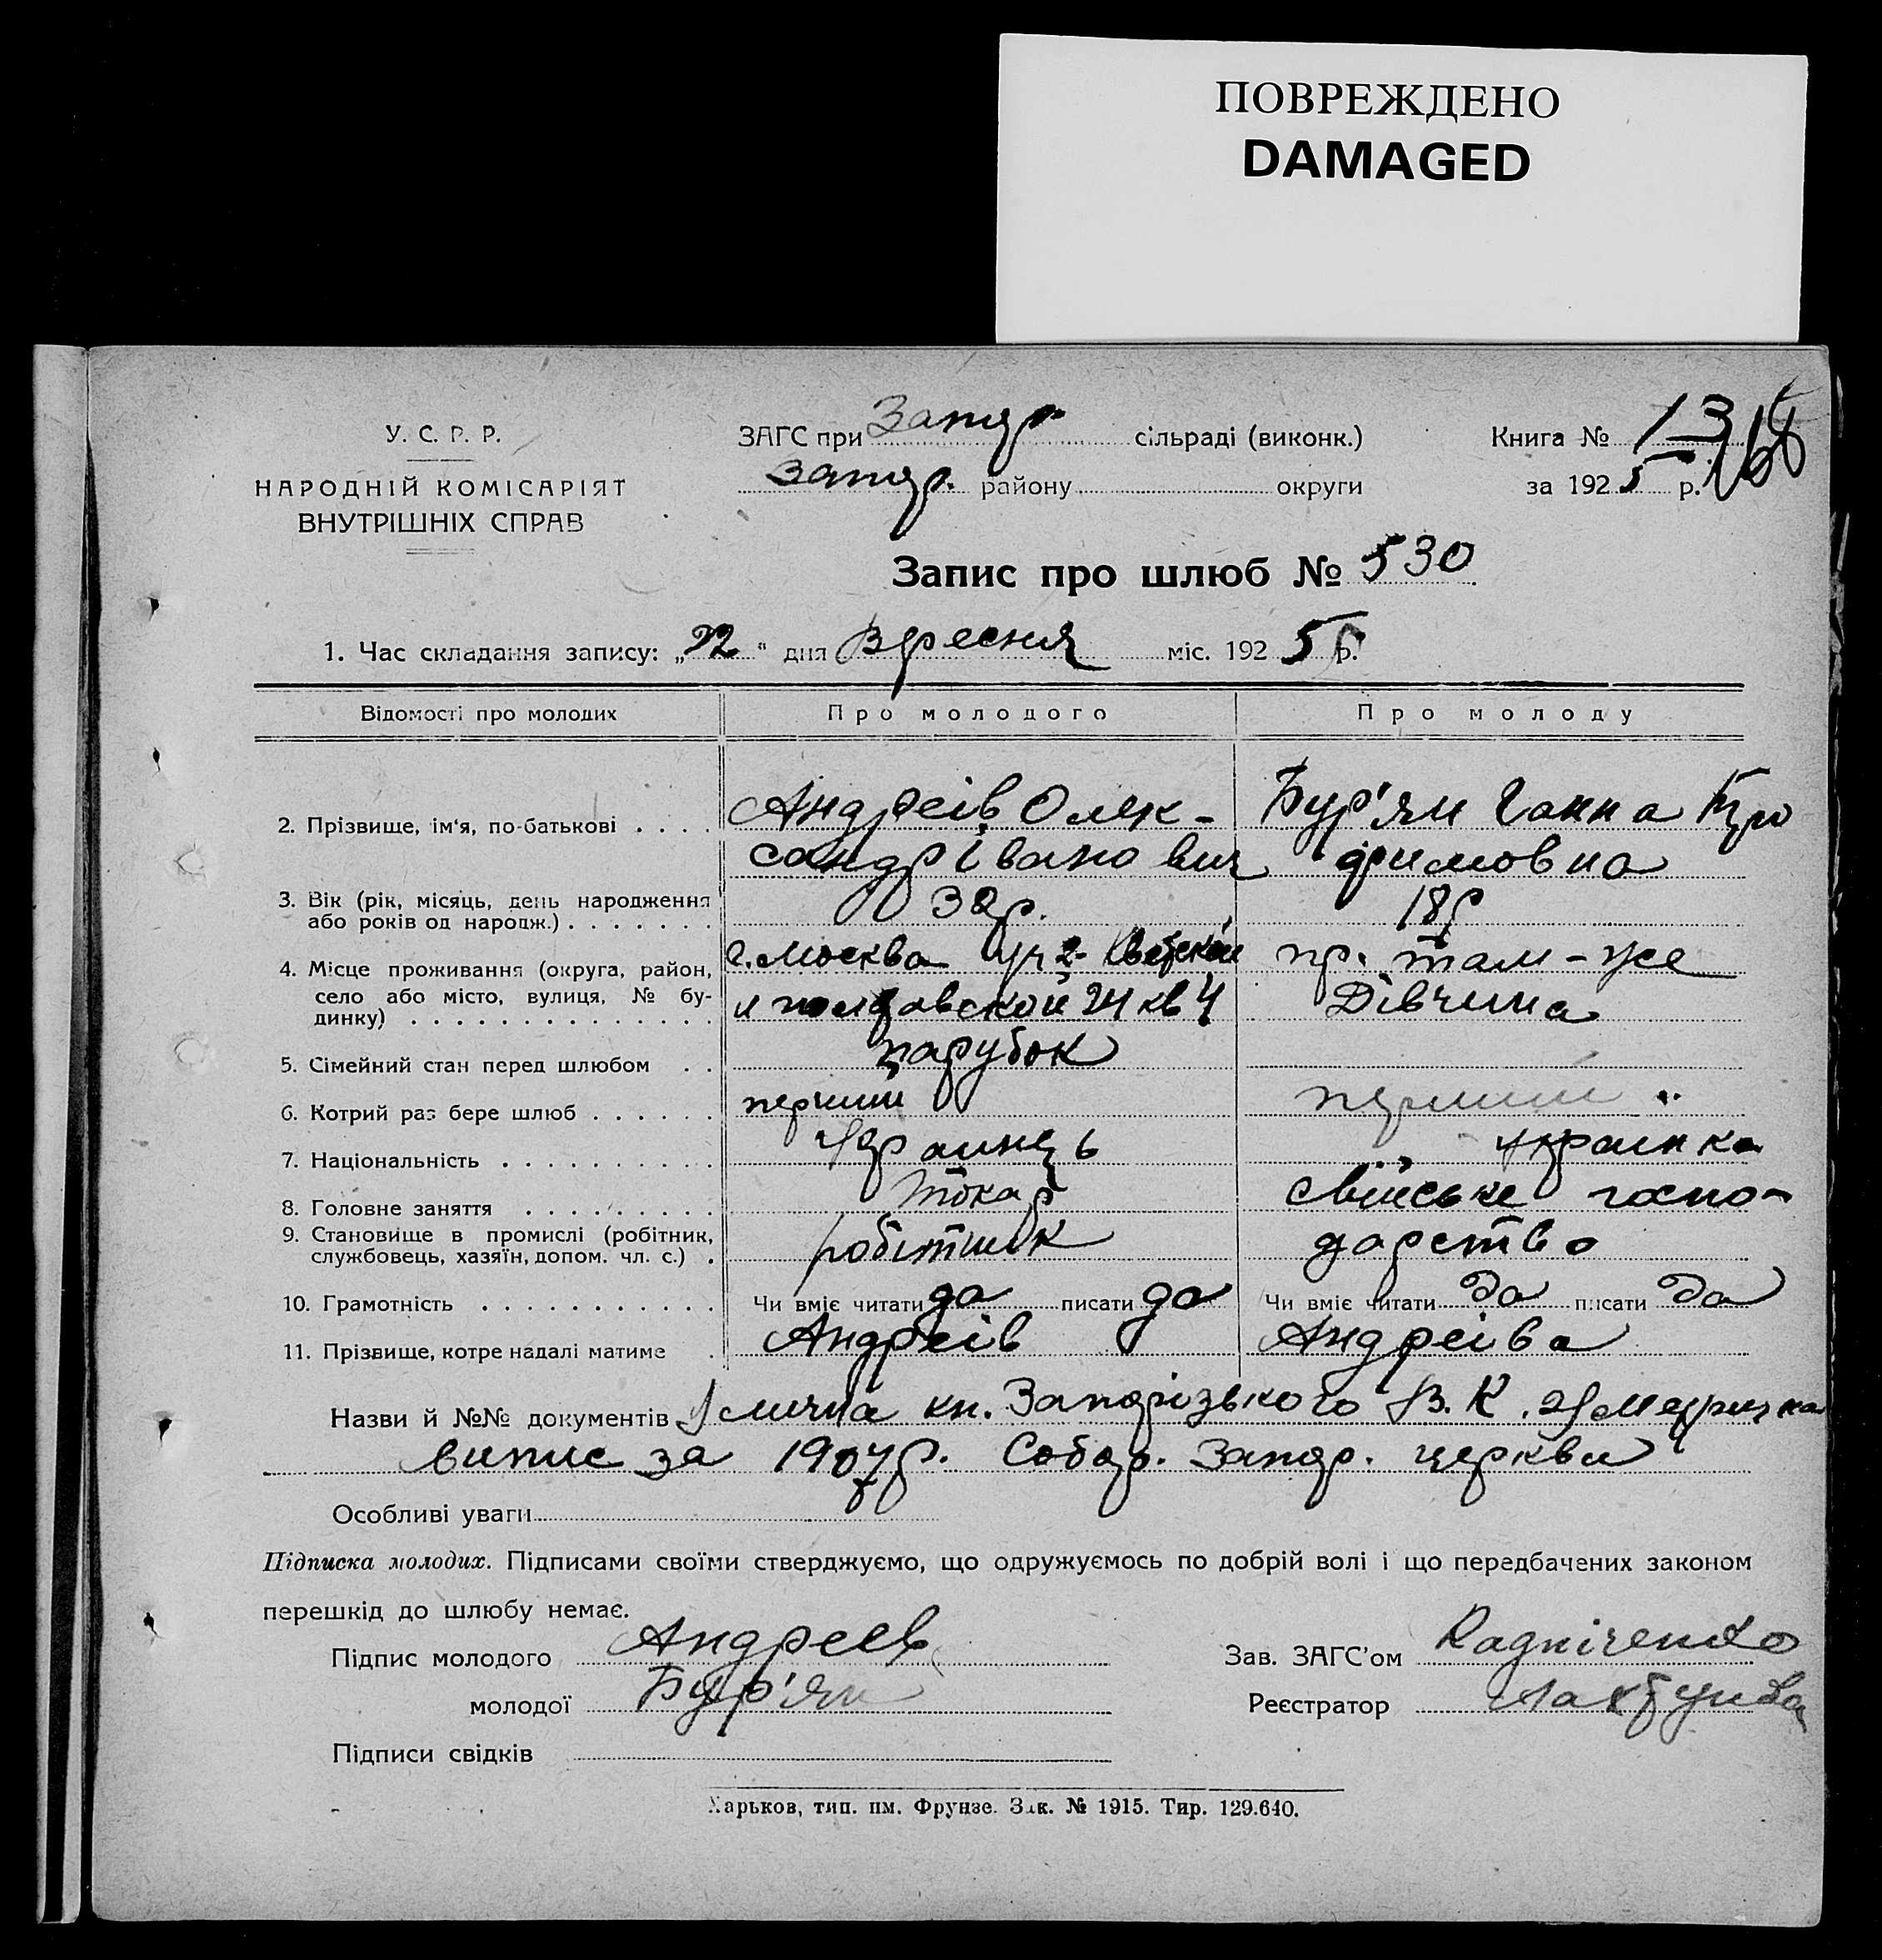 ПОВРЕЖДЕНО
DAMAGED
У. С. Р. Р.
НАРОДНІЙ КОМІСАРІЯТ
ВНУТРІШНІХ СПРАВ
ЗАГС при Запор сільраді (виконк.)
Запор. району округи
Книга № 13
за 1925 р.
Запис про шлюб № 530
1. Час складання запису: „22" дня Вресня міс. 1925 р.
Відомості про молодих Про молодого Про молоду
2. Прізвище, ім'я, по-батькові . . . . Андреів Олек- Бур'ян Ганна
сандр Іванович димовна
3. Вік (рік, місяць, день народження
або років од народж.) . . . . . . . 32р. 18р
4. Місце проживання (округа, район, г. Москва пр. там-же
село або місто, вулиця, № бу-
динку) . . . . . . . . . . . . . . . и полтавской 24 кв 4 Дівчина
5. Сімейний стан перед шлюбом . . парубок
6. Котрий раз бере шлюб . . . . . . перший перший
7. Національність . . . . . . . . . . Украинець украинка
8. Головне заняття . . . . . . . . . Токар свійське госпо-
9. Становище в промислі (робітник,
службовець, хазяїн, допом. чл. с.) . робітник дарство
10. Грамотність . . . . . . . . . . . Чи вміє читати да писати да Чи вміє читати да писати да
11. Прізвище, котре надалі матиме . Андреів Андреіва
Назви й №№ документів кн. Запорізького В. К.
випис за 1907р. Собор. Запор. церкви
Особливі уваги
Підписка молодих. Підписами своїми стверджуємо, що одружуємось по добрій волі і що передбачених законом
перешкід до шлюбу немає.
Підпис молодого Андреев Зав. ЗАГС'ом
молодої Бур'ян Реєстратор
Підписи свідків
Харьков, тип. им. Фрунзе. Зак. № 1915. Тир. 129.640.